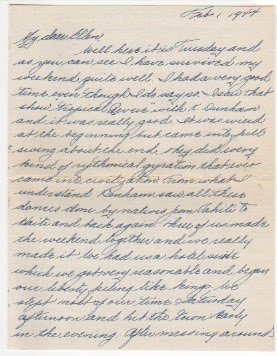 Feb. 1, 1944
My dear Ellen,
Well here it is Tuesday and
as you can see I have survived my
weekend quite well. I had a very good
time even though I do say so. I saw that
show Tropical Revue with K Dunham
and it was really good. It was weird
at the beginning but came into full
swing about the end. They did every
kind of rythmical gyration that ever
came into civilization. From what I
understand Dunham saw all these
dances done by natives from Tahiti to
Haiti and back again. Three of us made
the weekend together and we really
made it. We had us a hotel suite
which we got very reasonable and began
our liberty feeling like kings. We
slept most of our time Saturday
afternoon and hit the town early
in the evening. After messing around